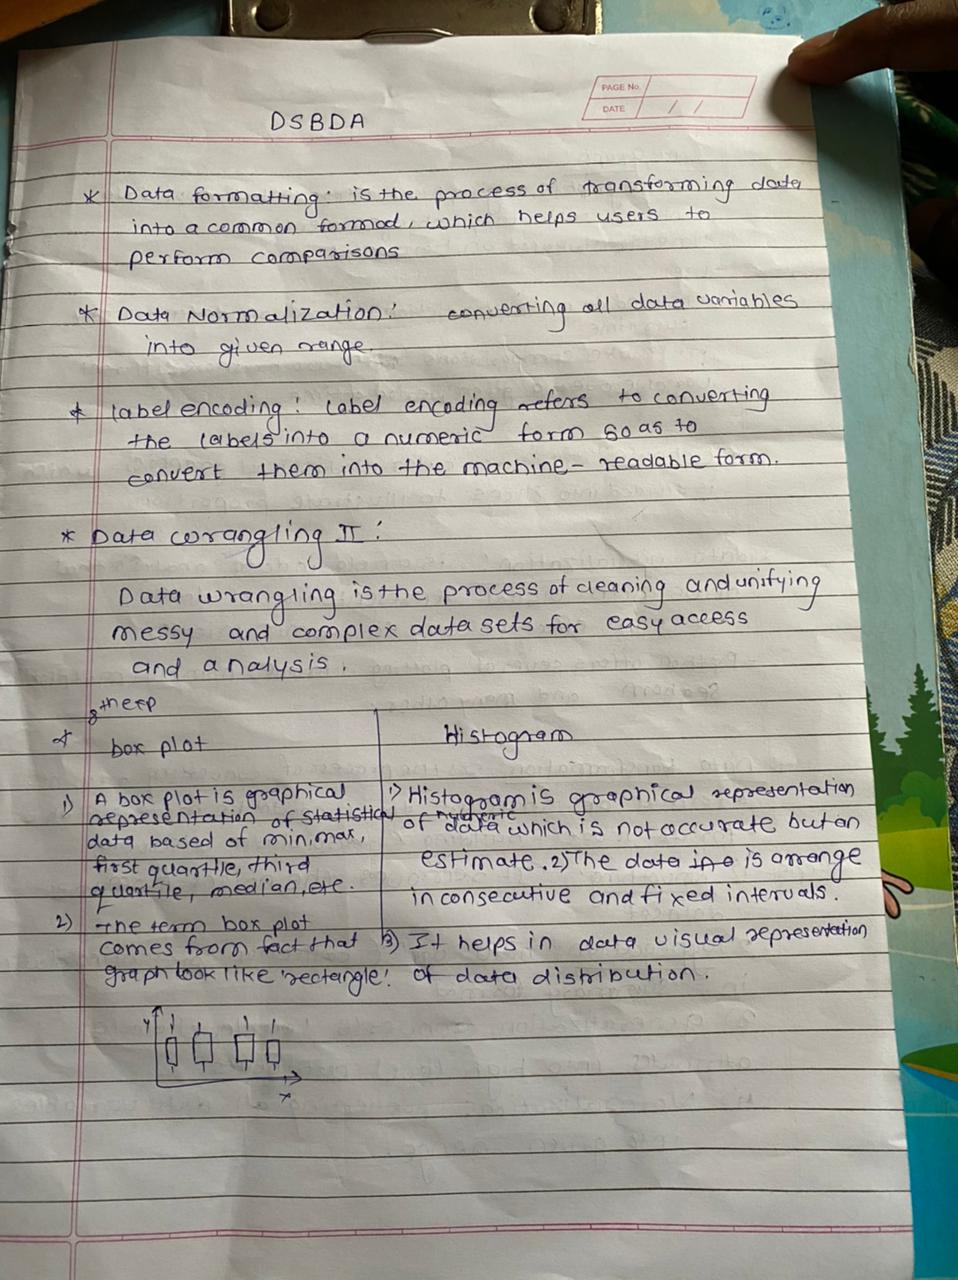 PAGE No.
DATE / /
DSBDA
* Data formatting: is the process of transforming data
into a common formod, which helps users to
perform comparisons
* Data Normalization: converting all data variables
into given range.
* Label encoding: Label encoding refers to converting
the labels into a numeric form so as to
convert them into the machine-readable form.
* Data wrangling II:
Data wrangling is the process of cleaning and unifying
messy and complex data sets for easy access
and analysis.
* box plot
1) A box plot is graphical
representation of statistical
data based of min, max,
first quartile, third
quartile, median, etc.
2) The term box plot
comes from fact that
graph look like 'rectangle'.
Histogram
1) Histogram is graphical representation
of numeric data which is not accurate but an
estimate. 2) The data is arrange
in consecutive and fixed intervals.
3) It helps in data visual representation
of data distribution.
Y
x